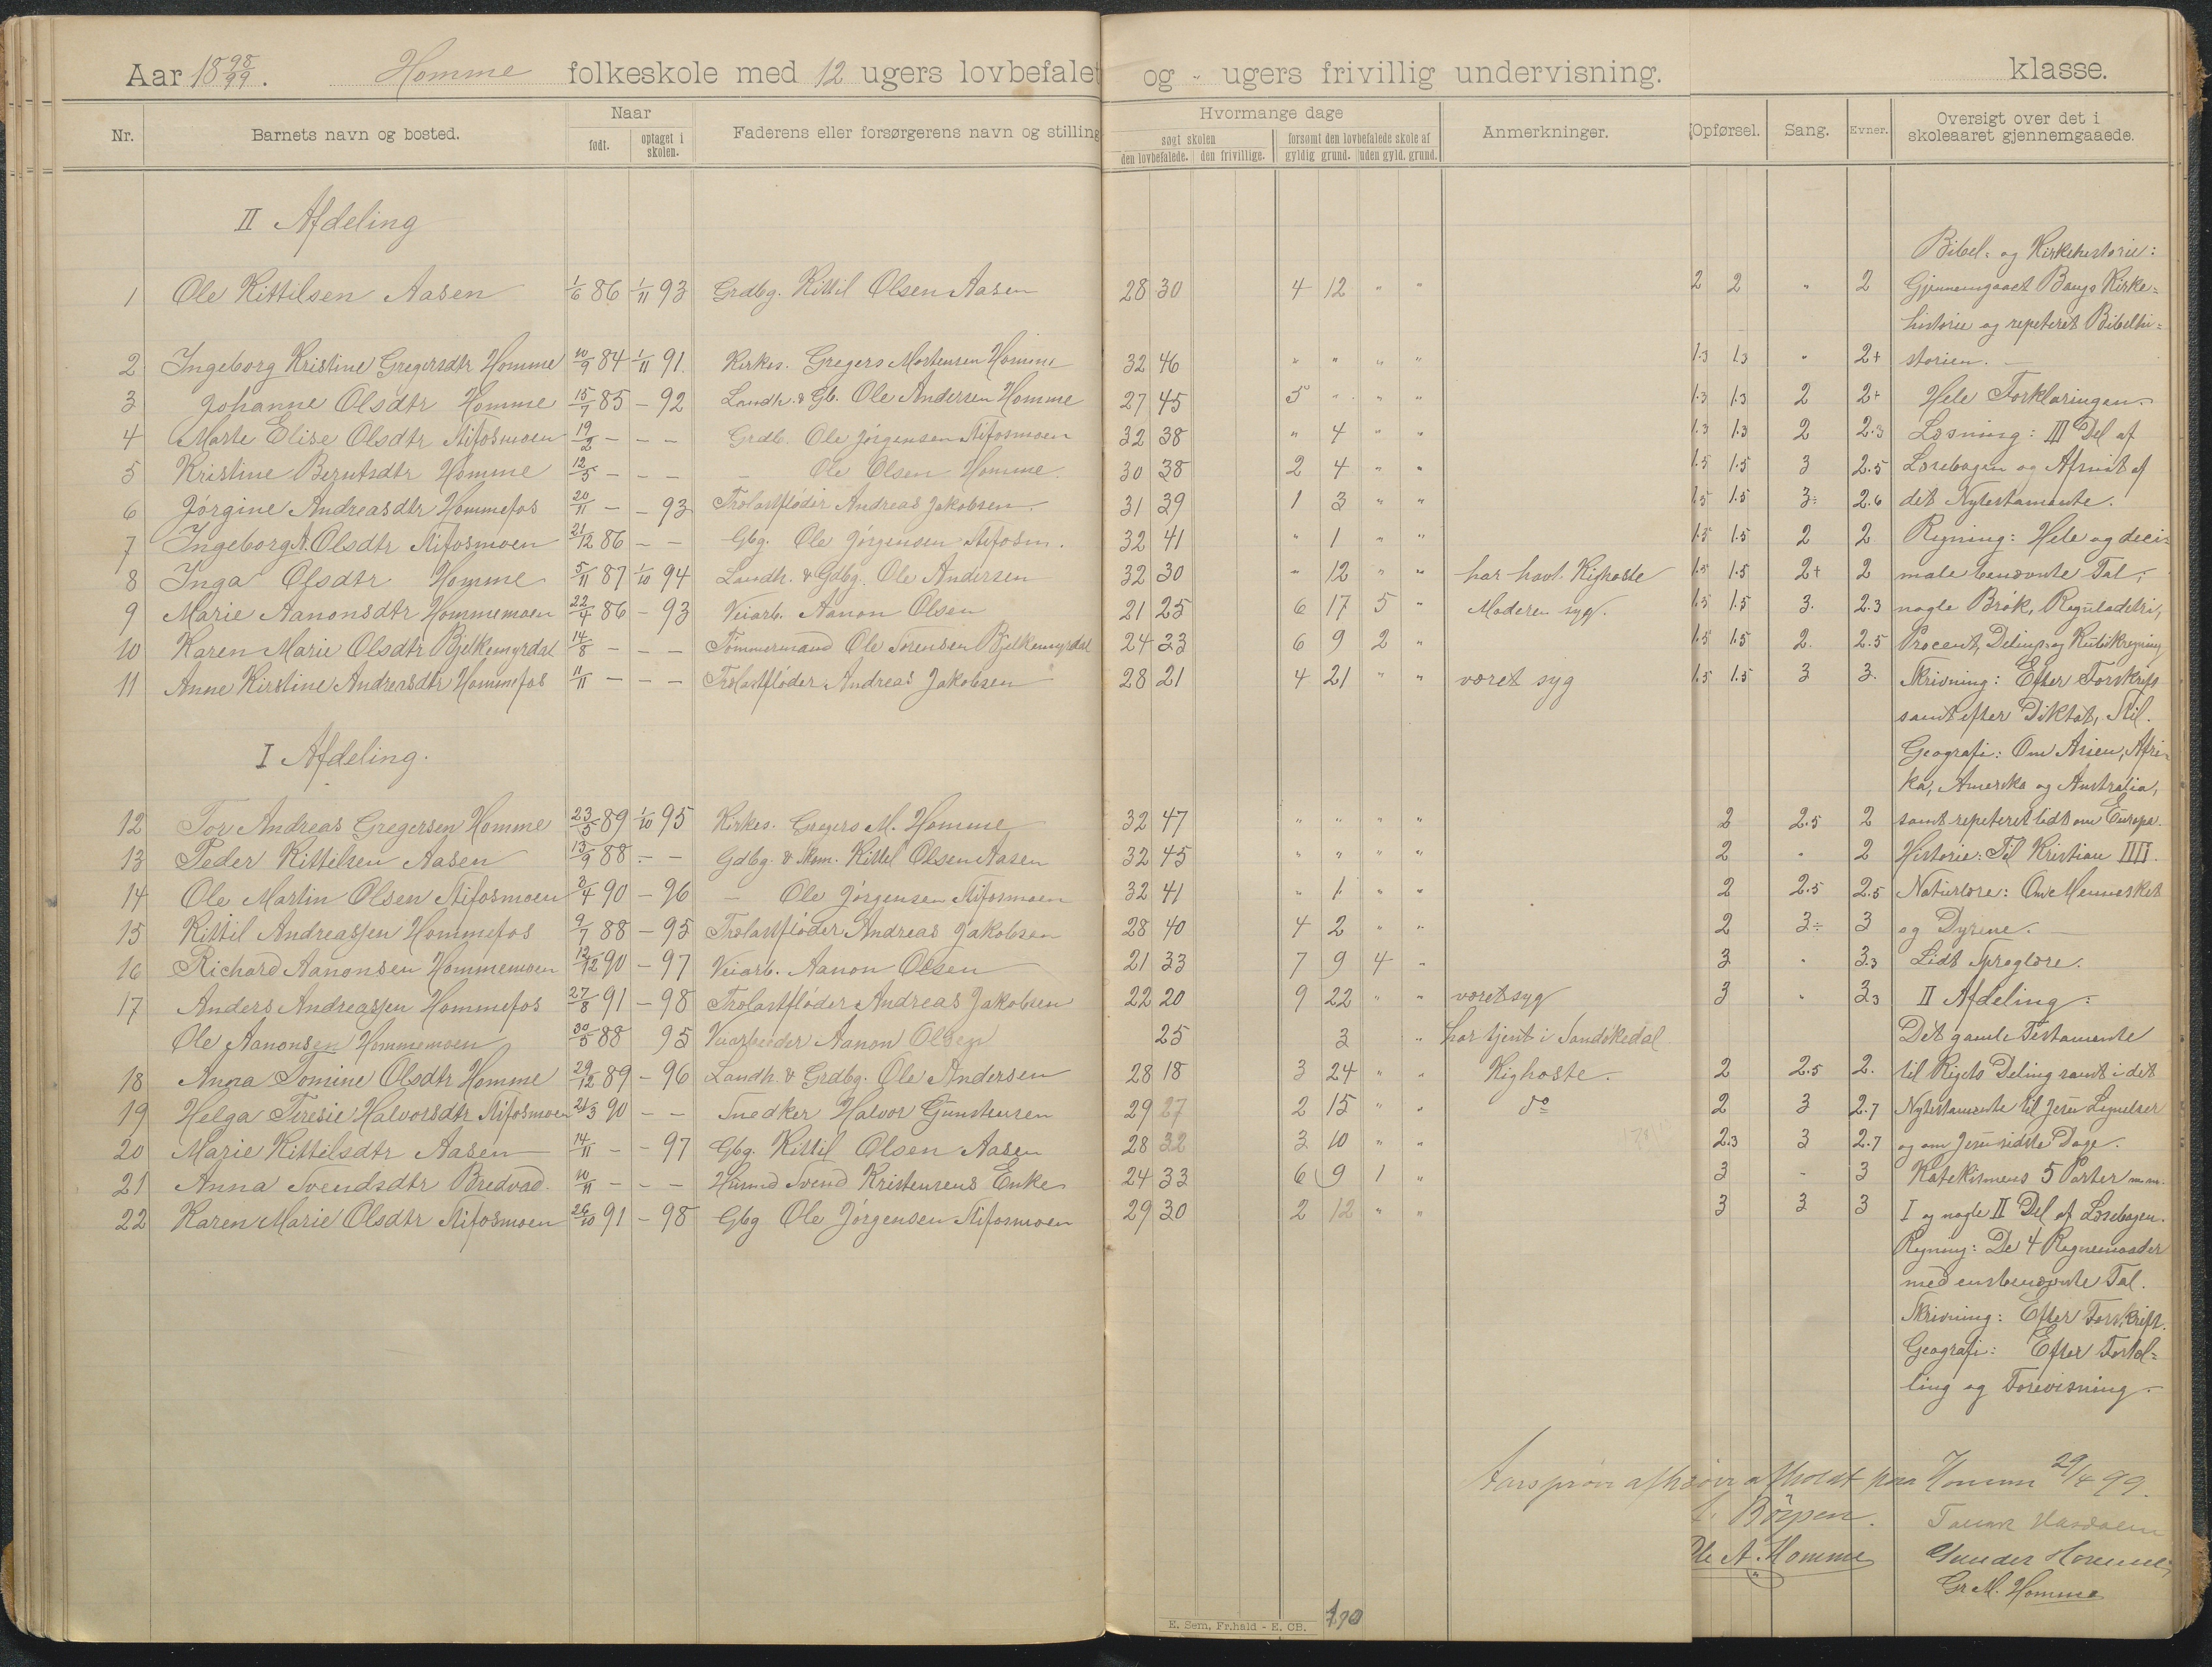 Aar 18 98/99. Homme folkeskole med 12 ugers lovbefalet og - ugers frivillig undervisning. klasse.
Nr. Barnets navn og bosted. Naar født. optaget i skolen. Faderens eller forsørgerens navn og stilling Hvormange dage søgt skolen den lovbefalede. den frivillige. forsømt den lovbefalede skole af gyldig grund. uden gyld. grund. Anmerkninger. Opførsel. Sang. Evner. Oversigt over det i skoleaaret gjennemgaaede.
II Afdeling
1 Ole Kittilsen Aasen 1/6 86 1/11 93 Grdbg. Kittil Olsen Aasen 28 30 4 12 " " 2 2 " 2
2 Ingeborg Kristine Gregersdtr Homme 10/9 84 1/11 91. Kirkes. Gregers Mortensen Homme 32 46 " " " " 1.3 1.3 " 2+
3 Johanne Olsdtr Homme 15/7 85 - 92 Landh. & Gb. Ole Andersen Homme 27 45 5 " " " 1.3 1.3 2 2+
4 Marte Elise Olsdtr Stifosmoen 19/2 - - - Grdb. Ole Jørgensen Stifosmoen 32 38 " 4 " " 1.3 1.3 2 2.3
5 Kristine Berntsdtr Homme 12/5 - - - - Ole Olsen Homme. 30 38 2 4 " " 1.5 1.5 3 2.5
6 Jørgine Andreasdtr Hommefos 20/11 - - 93 Trælastfløder Andreas Jakobsen 31 39 1 3 " " 1.5 1.5 3÷ 2.6
7 Ingeborg A. Olsdtr Stifosmoen 21/12 86 - - Gbg. Ole Jørgensen Stifosm. 32 41 " 1 " " 1.5 1.5 2 2
8 Inga Olsdtr Homme 5/11 87 1/10 94 Landh. & Gdbg. Ole Andersen 32 30 " 12 " " har havt Kighoste 1.5 1.5 2+ 2
9 Marie Aanonsdtr Hommemoen 22/4 86 - 93 Veiarb. Aanon Olsen 21 25 6 17 5 " Moderen syg. 1.5 1.5 3. 2.3
10 Karen Marie Olsdtr Bjelkemyrdal 14/8 - - - Tømmermand Ole Sørensen Bjelkemyrdal 24 23 6 9 2 " 1.5 1.5 2. 2.5
11 Anne Kirstine Andreasdtr Hommefos 11/11 - - - Trælastfløder Andreas Jakobsen 28 21 4 21 " " været syg 1.5 1.5 3 3.
I Afdeling.
12 Tor Andreas Gregersen Homme 23/5 89 1/10 95 Kirkes. Gregers M. Homme 32 47 " " " " 2 2.5 2
13 Peder Kittilsen Aasen 13/9 88 - - Gdbg. & Skom. Kittil Olsen Aasen 32 45 " " " " 2 " 2
14 Ole Martin Olsen Stifosmoen 3/4 90 - 96 - Ole Jørgensen Stifosmoen 32 41 " 1 " " 2 2.5 2.5
15 Kittil Andreassen Hommefos 9/7 88 - 95 Trælastfløder Andreas Jakobsen 28 40 4 2 " " 2 3÷ 3
16 Richard Aanonsen Hommemoen 12/12 90 - 97 Veiarb. Aanon Olsen 21 33 7 9 4 " 3 " 3.3
17 Anders Andreassen Hommefos 27/8 91 - 98 Trælastfløder Andreas Jakobsen 22 20 9 22 " " været syg 3 " 3.3
Ole Aanonsen Hommemoen 30/5 88 95 Veiarbeider Aanon Olsen 25 3 " har tjent i Sandøkedal
18 Anna Tomine Olsdtr Homme 29/12 89 - 96 Landh. & Grdbg. Ole Andersen 28 18 3 24 " " Kighoste. 2 2.5 2.
19 Helga Teresie Halvorsdtr Stifosmoen 21/3 90 - - Snedker Halvor Gunstensen 29 27 2 15 " " do 2 3 2.7
20 Marie Kittilsdtr Aasen 14/11 - - 97 Gbg. Kittil Olsen Aasen 28 32 3 10 " " 2.3 3 2.7
21 Anna Svendsdtr Bredvad. 10/11 - - - Husmd Svend Kristensens Enke 24 33 6 9 1 " 3 - 3
22 Karen Marie Olsdtr Stifosmoen 26/10 91 - 98 Gbg Ole Jørgensen Stifosmoen 29 30 2 12 " " 3 3 3
Bibel- og Kirkehistorie:
Gjennemgaaet Bangs Kirke-
historie og repeteret Bibelhi-
storien. -
Hele Forklaringen.
Læsning: III Del af
Læsebogen og Afsnit af
det Nytestamente.
Regning: Hele og deci-
male benævnte Tal,
nogle Brøk, Reguladetri,
Procent, Delings og Kubikregning
Skrivning: Efter Forskrift
samt efter Diktat, Stil.
Geografi: Om Asien, Afri-
ka, Amerika og Australia,
samt repeteret lidt om Europa.
Historie: Til Kristian IIII.
Naturlære: Om Mennesket
og Dyrene. -
Lidt Sproglære.
II Afdeling:
Det gamle Testamente
til Rigets Deling samt i det
Nytestamente til Jesu Lignelser
og om Jesu sidste Dage.
Katekismens 5 Parter m.m.
I og nogle II Del af Læsebogen.
Regning: De 4 Regnemaader
med ensbenævnte Tal.
Skrivning: Efter Forskrift.
Geografi: Efter Fortæl-
ling og Forevisning.
Aarsprøve afholdt paa Homme 29/4 99.
Børpen. Hasdalen
Ole A. Homme Gunder Homme
Gr M. Homme
E. Sem, Fr.hald - E. CB. 170